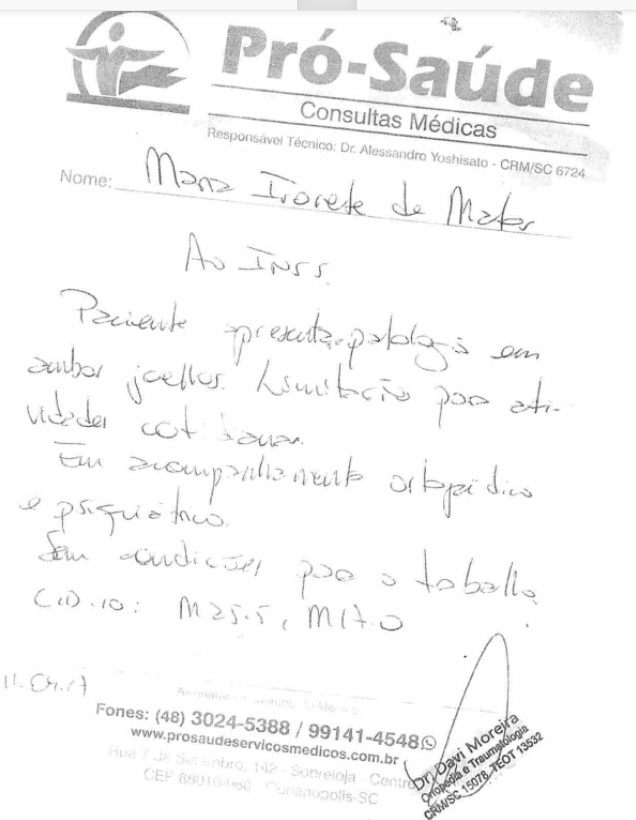 Pró-Saúde
Consultas Médicas
Responsável Técnico: Dr. Alessandro Yoshisato - CRM/SC 6724
Nome: Maria Ivorete de Matos
Ao INSS.
Paciente apresenta patologia em
ambos joelhos. Limitação para ati-
vidades cotidianas.
Em acompanhamento ortopédico
e psiquiátrico.
Sem condições para o trabalho.
CID.10: M25.5, M17.0
11.04.17
Fones: (48) 3024-5388 / 99141-4548
www.prosaudeservicosmedicos.com.br
Rua 7 de Setembro, 142 - Sobreloja - Centro
CEP 88010-060 - Florianópolis-SC
Dr. Davi Moreira
Ortopedia e Traumatologia
CRM/SC 15078 TEOT 13532